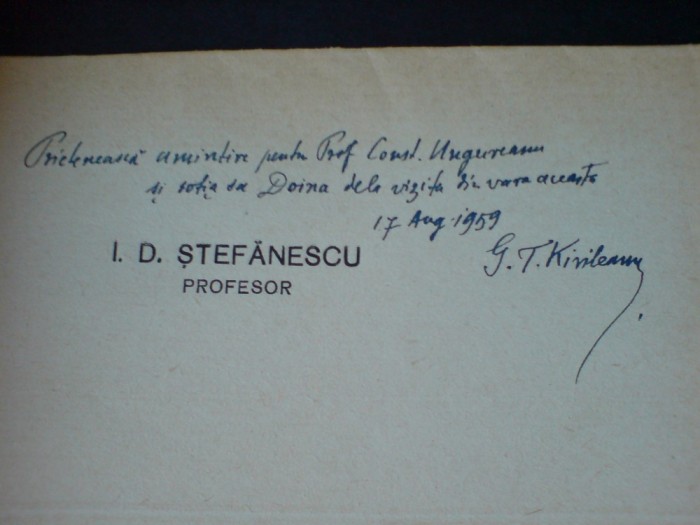 Prietenească amintire pentru Prof Const. Ungureanu
și soția sa Doina dela vizita din vara aceasta
17 Aug. 1959
G. T. Kirileanu
I. D. ȘTEFĂNESCU
PROFESOR